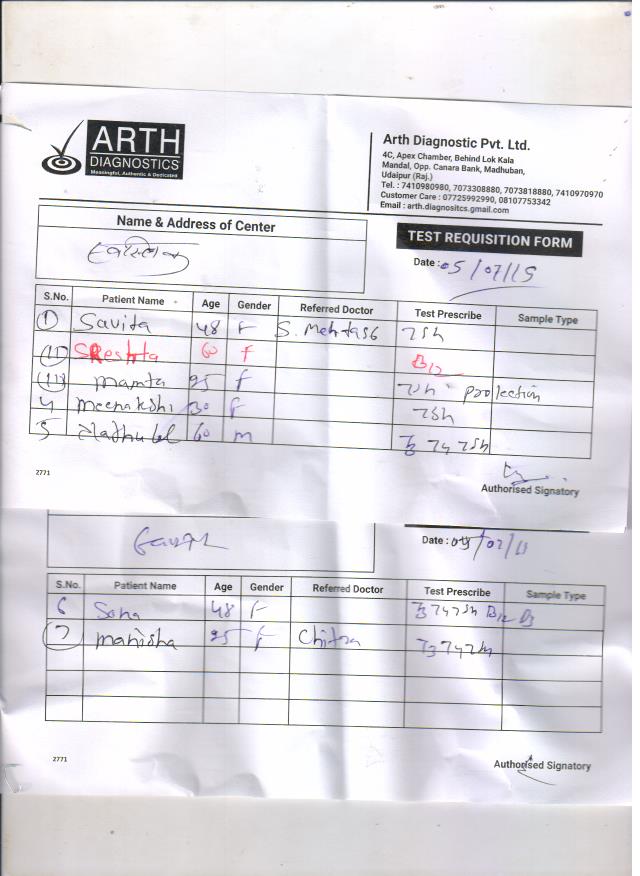 ARTH
DIAGNOSTICS
Meaningful, Authentic & Dedicated
Arth Diagnostic Pvt. Ltd.
4C, Apex Chamber, Behind Lok Kala
Mandal, Opp. Canara Bank, Madhuban,
Udaipur (Raj.)
Tel. : 7410980980, 7073308880, 7073818880, 7410970970
Customer Care : 07725992990, 08107753342
Email : arth.diagnositcs.gmail.com
Name & Address of Center
TEST REQUISITION FORM
Date : 05/07/19
S.No. Patient Name Age Gender Referred Doctor Test Prescribe Sample Type
1 Savita 48 F S. Mehta TSH
II SReshta 60 F B12
III mamta 25 F TSH - prolection
4 meenakshi 30 F TSH
5 60 m T3 T4 TSH
2771
Authorised Signatory
Date :
S.No. Patient Name Age Gender Referred Doctor Test Prescribe Sample Type
6 Sona 48 F T3 T4 TSH B12 D3
7 manisha 25 F Chitra T3 T4 TSH
2771
Authorised Signatory